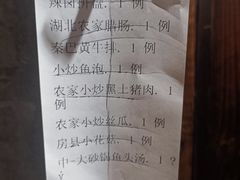 辣卤拼盘. 1 例
湖北农家腊肠. 1 例
秦巴黄牛抖. 1 例
小炒鱼泡. 1 例
农家小炒黑土猪肉. 1
例
农家小炒丝瓜. 1 例
房县小花菇. 1 例
中-大砂锅鱼头汤. 1 ?